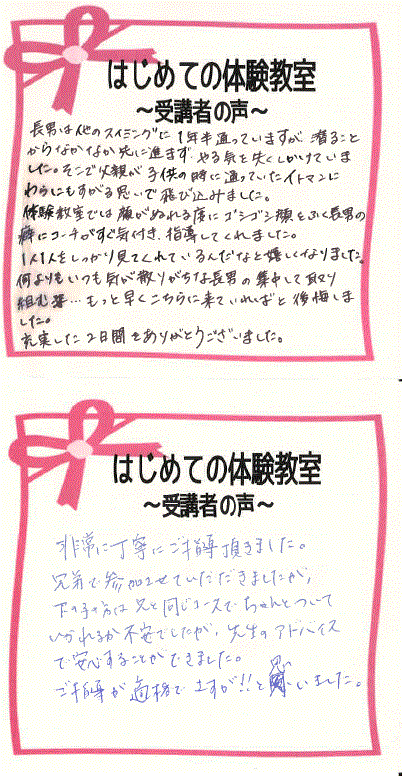 はじめての体験教室
～受講者の声～
長男は他のスイミングに1年半通っていますが、潜ること
からなかなか先に進まず、やる気を失くしかけていま
した。そこで父親が子供の時に通っていたイトマンに
わらにもすがる思いで飛び込みました。
体験教室では顔がぬれる度にゴシゴシ顔をふく長男の
癖にコーチがすぐ気付き、指導してくれました。
1人1人をしっかり見てくれているんだなと嬉しくなりました。
何よりもいつも気が散りがちな長男の集中して取り
組む姿…もっと早くこちらに来ていればと後悔しま
した。
充実した2日間をありがとうございました。
はじめての体験教室
～受講者の声～
非常に丁寧にご指導頂きました。
兄弟で参加させていただきましたが、
下の子の方は兄と同じコースでちゃんとついて
いかれるか不安でしたが、先生のアドバイス
で安心することができました。
ご指導が適格でさすが!!と思いました。